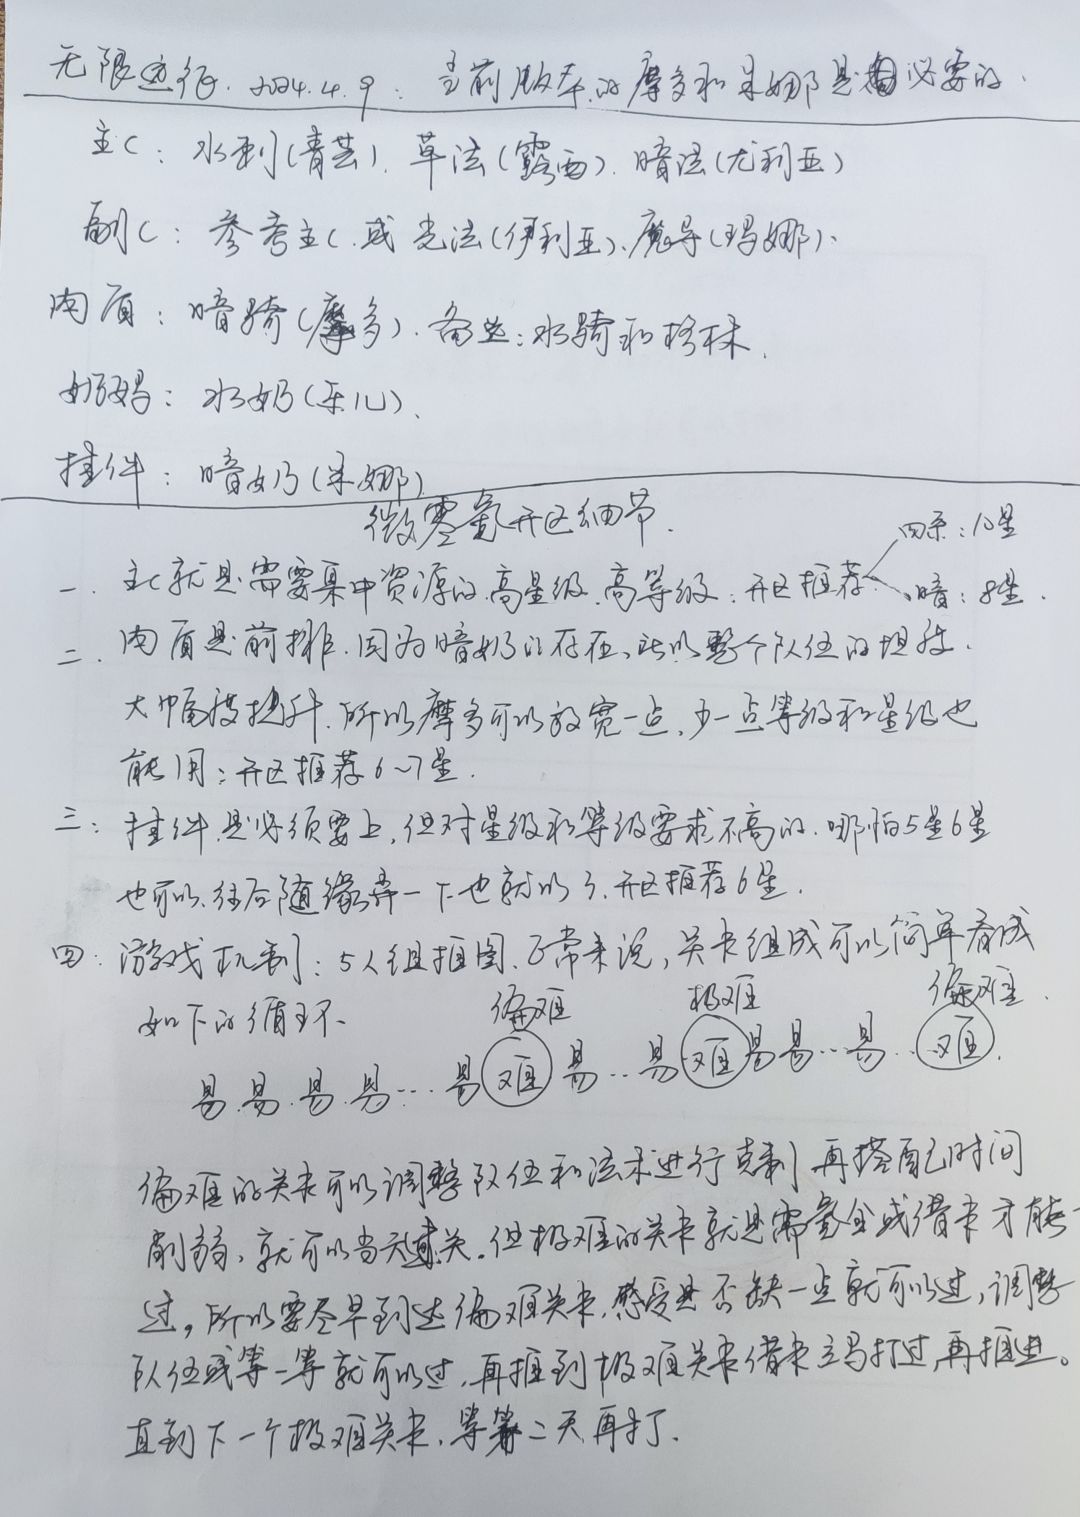 无限远征. 2024.4.9: 当前版本的摩多和朱娜是必要的.
主C: 水刺(青芸). 草法(露西). 暗法(尤利亚)
副C: 参考主C. 或光法(伊利亚)、魔导(玛娜).
肉盾: 暗骑(摩多). 备选: 水骑和格林.
奶妈: 水奶(乐儿).
挂件: 暗奶(朱娜)
微零氪开区细节.
四系: 10星
一. 主C就是需要集中资源的.高星级.高等级: 开区推荐
暗: 8星.
二. 肉盾是前排.因为暗奶的存在、所以整个队伍的坦度.
大幅度提升.所以摩多可以放宽一点,少一点等级和星级也
能用: 开区推荐6~7星.
三: 挂件是必须要上,但对星级和等级要求不高的.哪怕5星6星
也可以.往后随缘弄一下也就可以了.开区推荐6星.
四: 游戏机制: 5人组推图、正常来说,关卡组成可以简单看成
如下的循环.
偏难 极难 偏难.
易.易.易.易...易 难 易..易 难 易易...易..难.
偏难的关卡可以调整队伍和法术进行克制 再搭配时间
削弱,就可以当天过关.但极难的关卡就是需氪金或借卡才能
过,所以要尽早到达偏难关卡.感受是否缺一点就可以过,调整
队伍或等一等就可以过,再推到极难关卡借卡立马打过,再推进。
直到下一个极难关卡,等第二天再打.